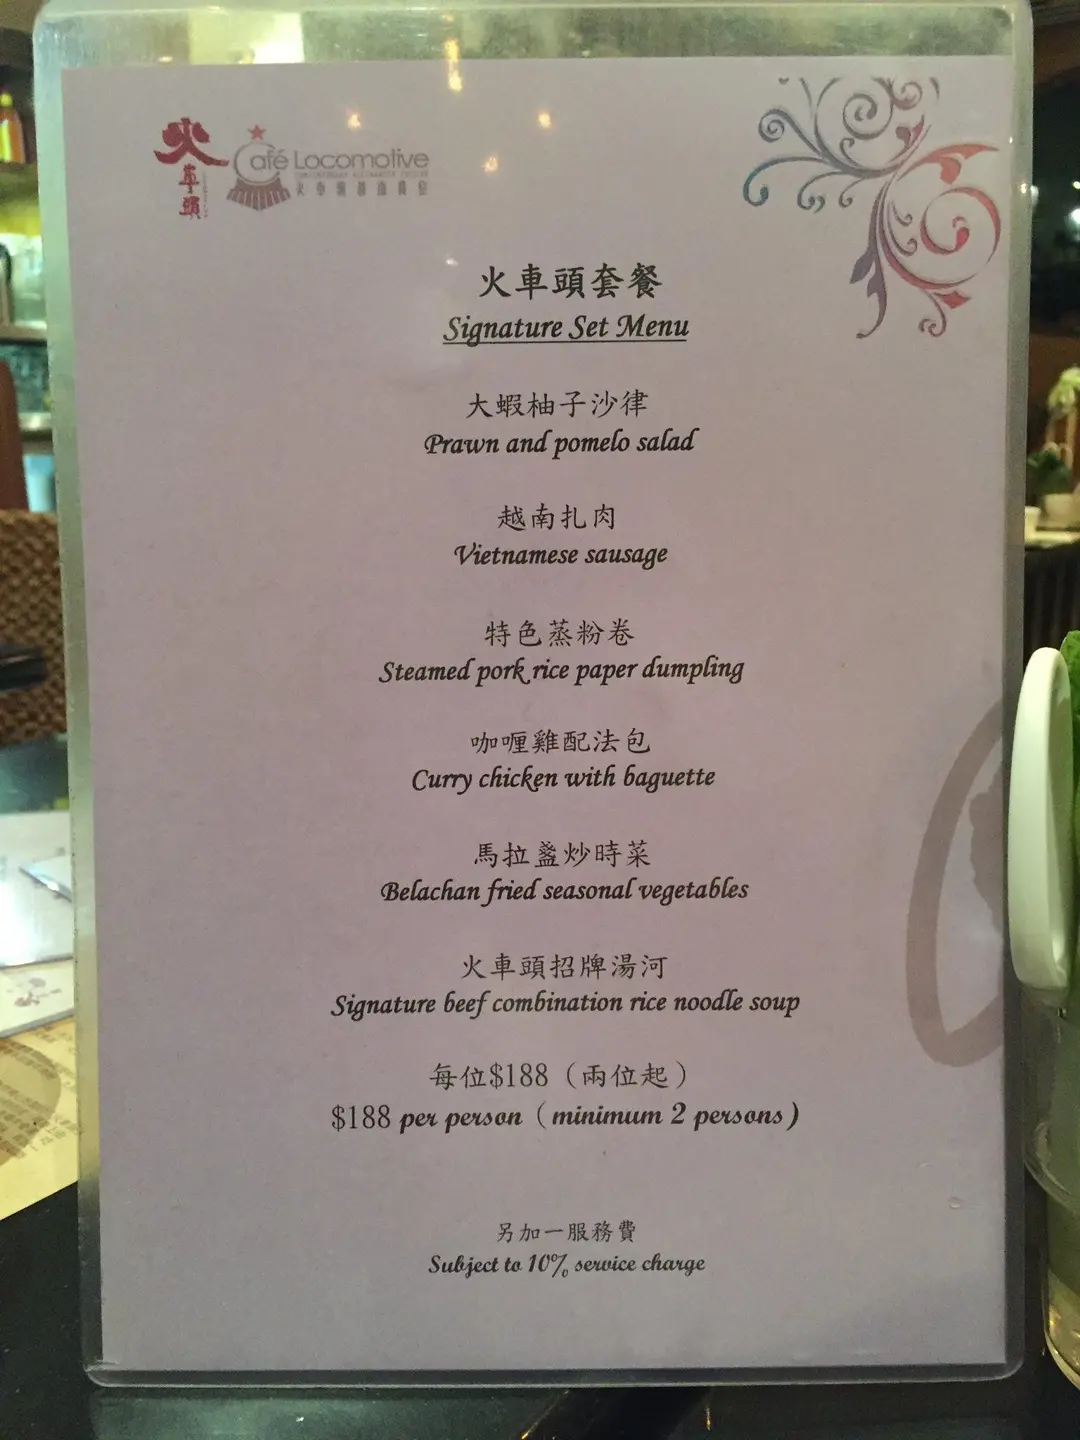 火車頭
Café Locomotive
火車頭套餐
Signature Set Menu
大蝦柚子沙律
Prawn and pomelo salad
越南扎肉
Vietnamese sausage
特色蒸粉卷
Steamed pork rice paper dumpling
咖喱雞配法包
Curry chicken with baguette
馬拉盞炒時菜
Belachan fried seasonal vegetables
火車頭招牌湯河
Signature beef combination rice noodle soup
每位$188（兩位起）
$188 per person（minimum 2 persons）
另加一服務費
Subject to 10% service charge